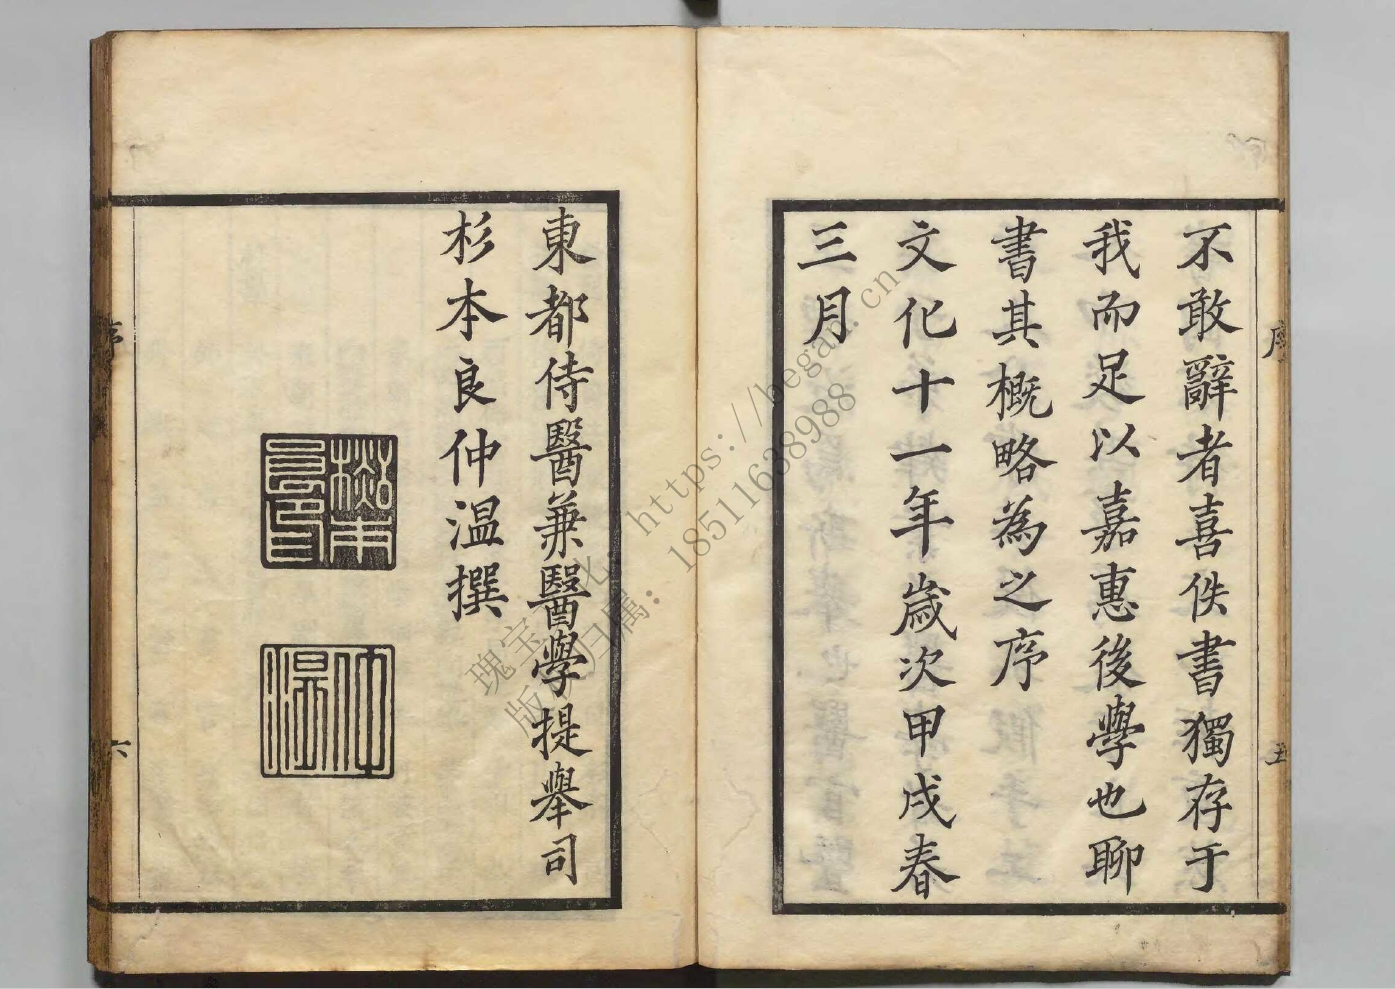 不敢辭者喜佚書獨存于
我而足以嘉惠後學也聊
書其概略為之序
文化十一年歲次甲戌春
三月
序
五
東都侍醫兼醫學提舉司
杉本良仲溫撰
杉本
良印
仲
溫
序
六
https://began.cn
18511638988